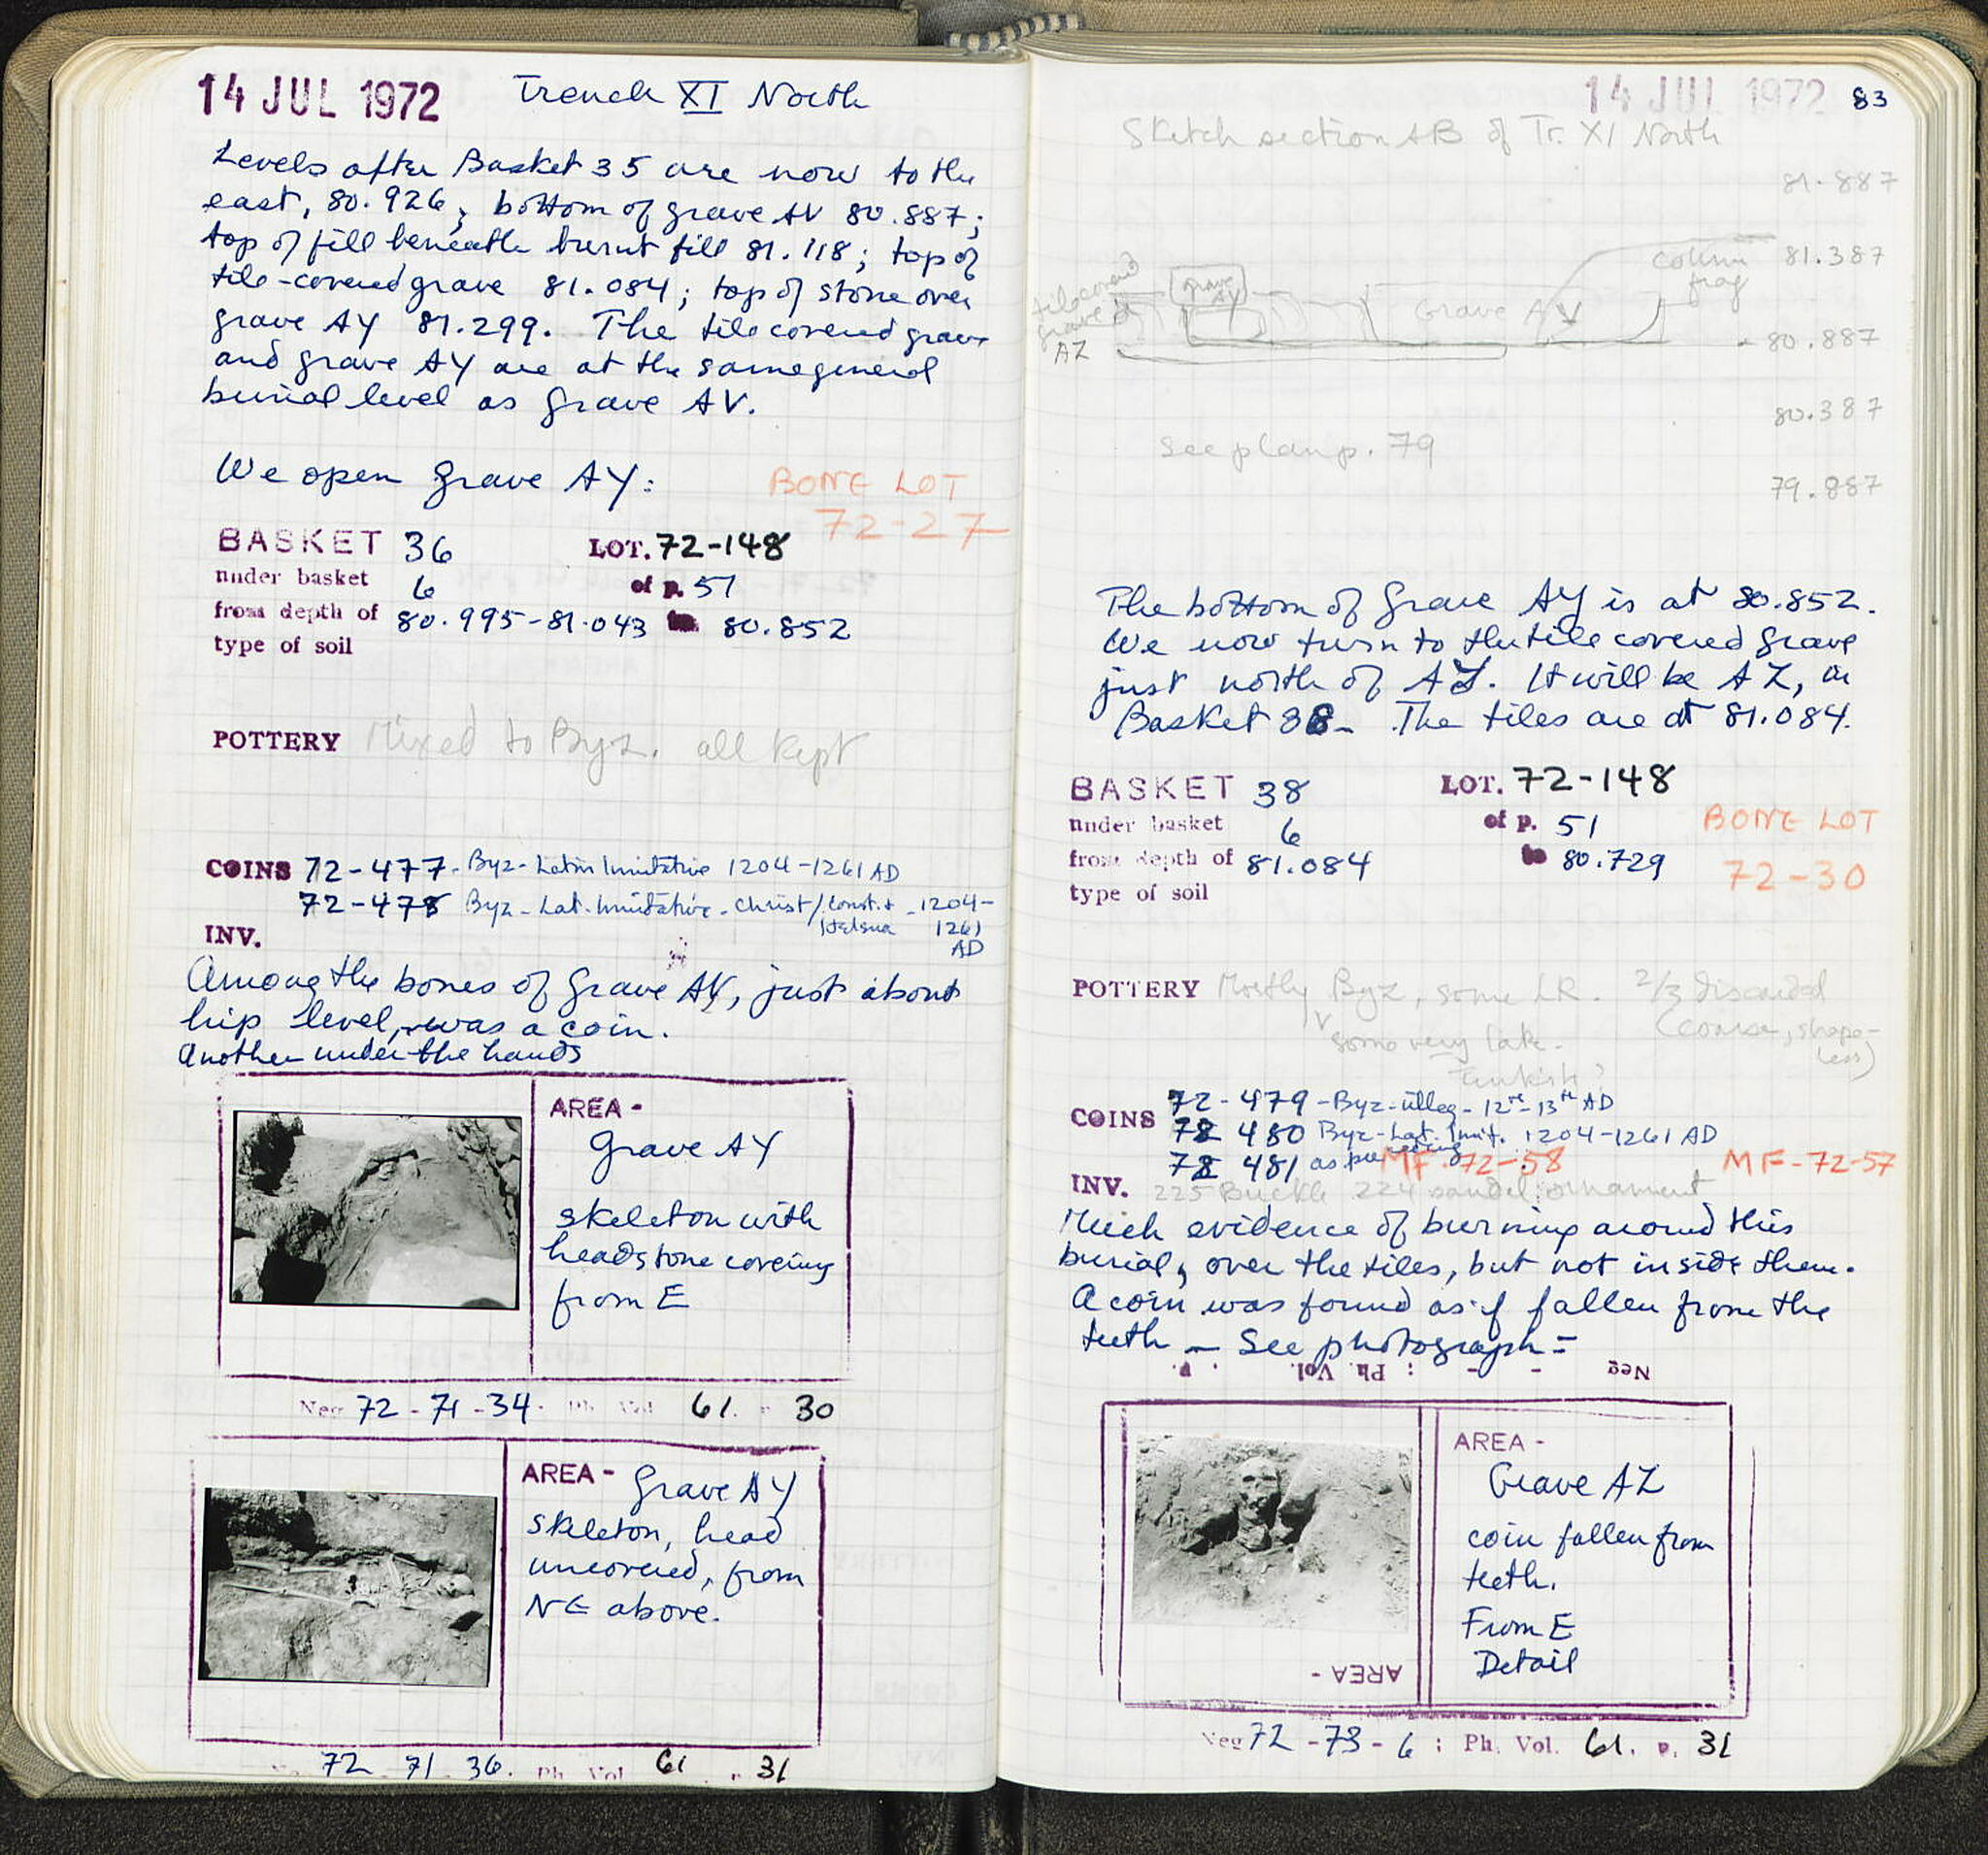 14 JUL 1972 Trench XI North
Levels after Basket 35 are now to the
east, 80.926; bottom of grave AV 80.887;
top of fill beneath burnt fill 81.118; top of
tile-covered grave 81.084; top of stone over
grave AY 81.299. The tile covered grave
and grave AY are at the same general
burial level as grave AV.
We open grave AY:
BONE LOT
72-27
BASKET 36 LOT. 72-148
under basket 6 of p. 51
from depth of 80.995-81.043 to 80.852
type of soil
POTTERY Mixed to Byz. all kept
COINS 72-477 - Byz-Latin Imitative 1204-1261 AD
72-478 Byz-Lat. Imitative - Christ/Const. + Helena - 1204-1261 AD
INV.
Among the bones of grave AY, just about
hip level, was a coin.
Another under the hands
AREA -
Grave AY
skeleton with
headstone covering
from E
Neg 72-71-34. Ph. Vol. 61. p 30
AREA - Grave AY
skeleton, head
uncovered, from
NE above.
72 71 36. Ph. Vol 61 p 31
14 JUL 1972 83
Sketch section AB of Tr. XI North
81.887
column frag 81.387
tile covered grave AZ
grave AY
Grave AV
80.887
80.387
See plan p. 79
79.887
The bottom of Grave AY is at 80.852.
We now turn to the tile covered grave
just north of AY. It will be AZ, in
Basket 38 - The tiles are at 81.084.
BASKET 38 LOT. 72-148
under basket 6 of p. 51
from depth of 81.084 to 80.729
type of soil
BONE LOT
72-30
POTTERY Mostly Byz, some LR. 2/3 discarded
(coarse, shapeless)
some very late -
Turkish?
COINS 72-479 - Byz-illeg - 12th-13th AD
72 480 Byz-Lat. Imit. 1204-1261 AD
72 481 as preceding
MF-72-58 MF-72-57
INV. 225 Buckle 224 sandal ornament
Much evidence of burning around this
burial, over the tiles, but not inside them.
A coin was found as if fallen from the
teeth - See photograph =
Neg - - : Ph. Vol. . p.
AREA -
Grave AZ
coin fallen from
teeth.
From E
Detail
AREA -
Neg 72-73-6 ; Ph. Vol. 61. p. 31